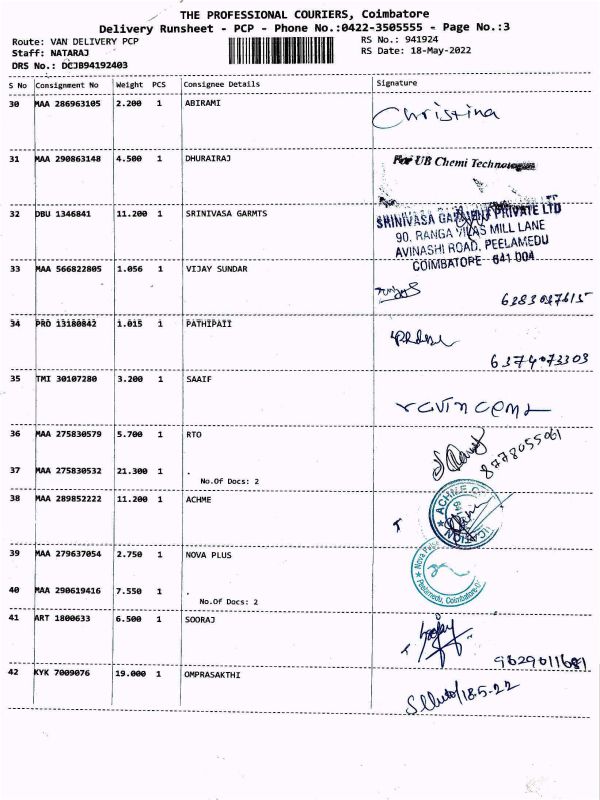 THE PROFESSIONAL COURIERS, Coimbatore
Delivery Runsheet - PCP - Phone No.:0422-3505555 - Page No.:3
Route: VAN DELIVERY PCP
RS No.: 941924
Staff: NATARAJ
RS Date: 18-May-2022
DRS No.: DCJB94192403
S No Consignment No Weight PCS Consignee Details Signature
30 MAA 286963105 2.200 1 ABIRAMI
Christina
31 MAA 290863148 4.500 1 DHURAIRAJ
For UB Chemi Technologies
32 DBU 1346841 11.200 1 SRINIVASA GARMTS
SRINIVASA GARMENT PRIVATE LTD
90, RANGA VILAS MILL LANE
AVINASHI ROAD, PEELAMEDU
COIMBATORE - 641 004
33 MAA 566822805 1.056 1 VIJAY SUNDAR
6383047615
34 PRO 13180842 1.015 1 PATHIPATI
6374073303
35 TMI 30107280 3.200 1 SAAIF
36 MAA 275830579 5.700 1 RTO
8778055061
37 MAA 275830532 21.300 1 .
No.Of Docs: 2
38 MAA 289852222 11.200 1 ACHME
ACHME
39 MAA 279637054 2.750 1 NOVA PLUS
Nova
Peelamedu, Coimbatore
40 MAA 290619416 7.550 1 .
No.Of Docs: 2
41 ART 1800633 6.500 1 SOORAJ
9629011681
42 KYK 7009076 19.000 1 OMPRASAKTHI
18.5.22